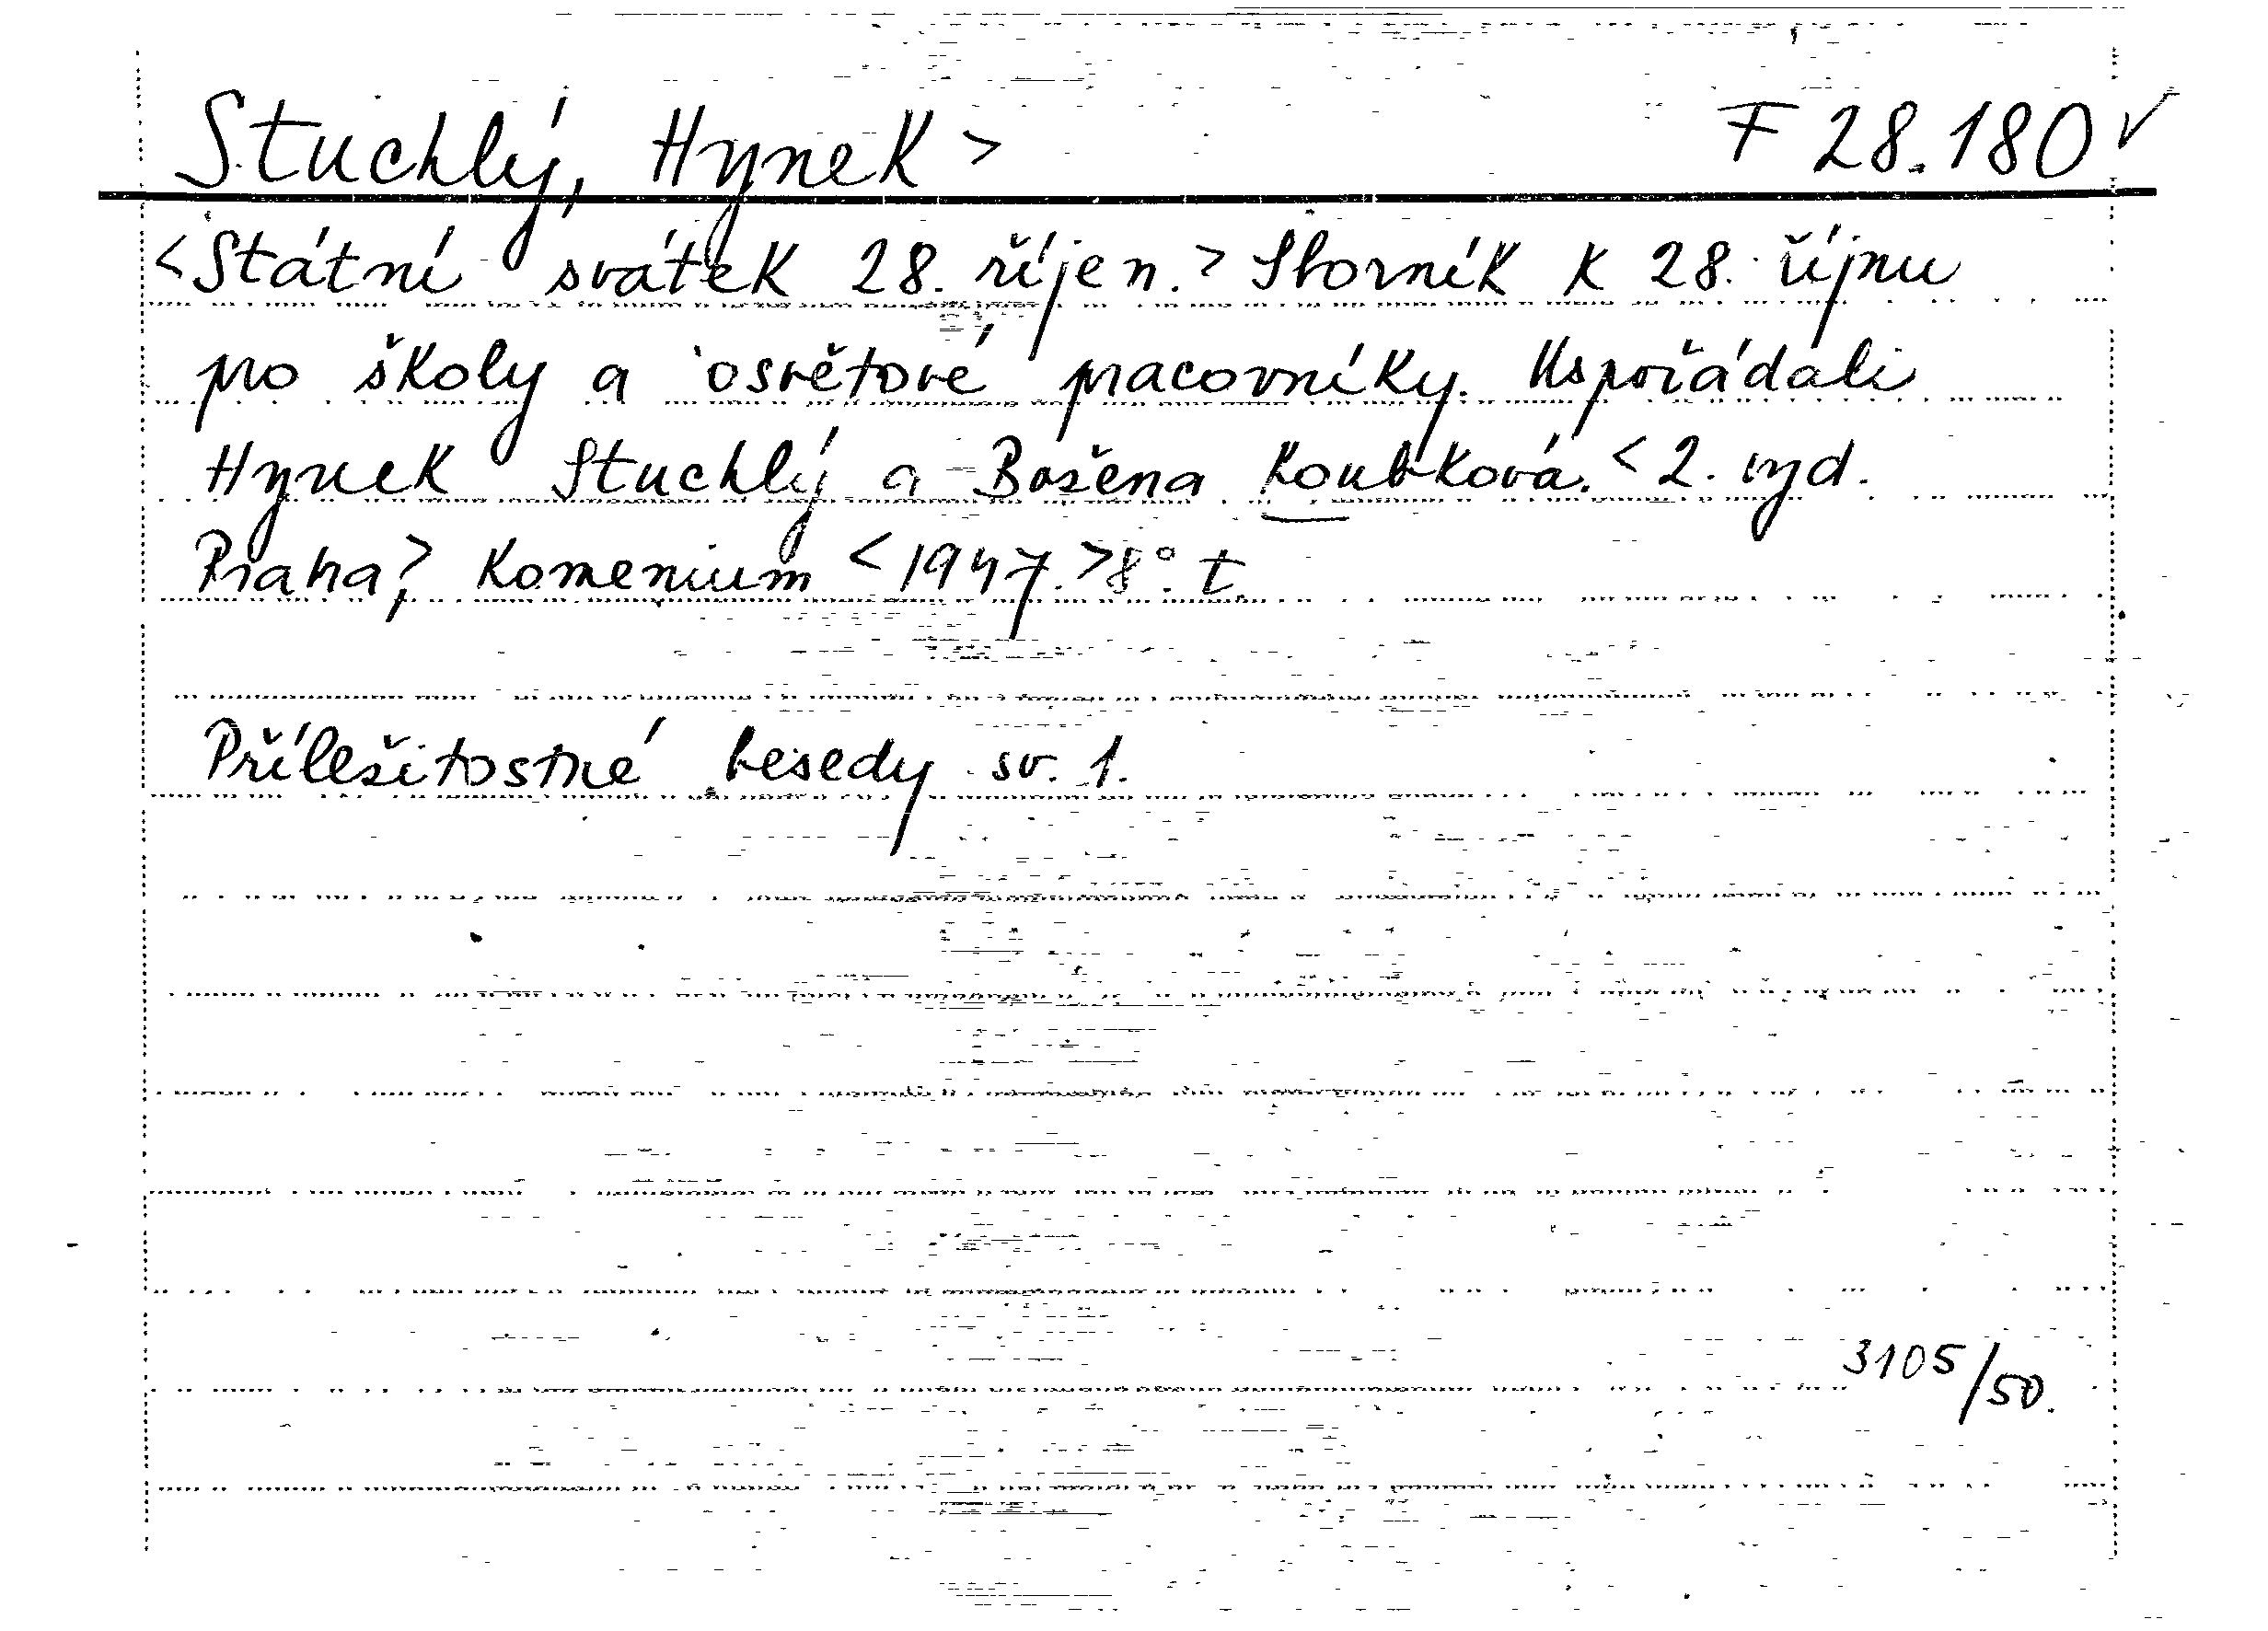 Stuchlý, Hynek > F 28.180 ✓
<Státní svátek 28. říjen.> Sborník k 28. říjnu
pro školy a osvětové pracovníky. Uspořádali
Hynek Stuchlý a Božena Koubková. <2. vyd.
Praha,> Komenium <1947.> 8°. t.
Příležitostné besedy sv. 1.
3105/50.